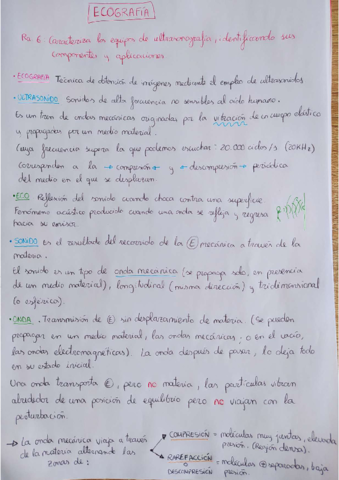 ECOGRAFÍA
Ra 6. Caracteriza los equipos de ultrasonografía, identificando sus
componentes y aplicaciones
• ECOGRAFIA Técnica de obtención de imágenes mediante el empleo de ultrasonidos
• ULTRASONIDO Sonidos de alta frecuencia no sensibles al oido humano.
Es un tren de ondas mecánicas originadas por la vibración de un cuerpo elástico
y propagadas por un medio material.
(cuya frecuencia supera la que podemos escuchar: 20.000 ciclos/s (20KHz)
corresponden a la → compresión ← y ← descompresión → periódica
del medio en el que se desplazan
• ECO Reflexión del sonido cuando choca contra una superficie
Fenómeno acústico producido cuando una onda se refleja y regresa
hacia su emisor.
• SONIDO es el resultado del recorrido de la E mecánica a través de la
materia.
El sonido es un tipo de onda mecánica (se propaga solo, en presencia
de un medio material), longitudinal (misma dirección) y tridimensional
(o esférica).
• ONDA. Transmisión de E sin desplazamiento de materia. (Se pueden
propagar en un medio material, las ondas mecánicas - o en el vacío,
las ondas electromagnéticas). La onda después de pasar, lo deja todo
en su estado inicial.
Una onda transporta E, pero no materia, las partículas vibran
alrededor de una posición de equilibrio pero no viajan con la
perturbación.
→ La onda mecánica viaja a través
de la materia alternando las
zonas de:
COMPRESIÓN = moléculas muy juntas, elevada
presión. (Mayor densa).
RAREFACCIÓN o
DESCOMPRESIÓN
= moléculas + separadas, baja
presión.